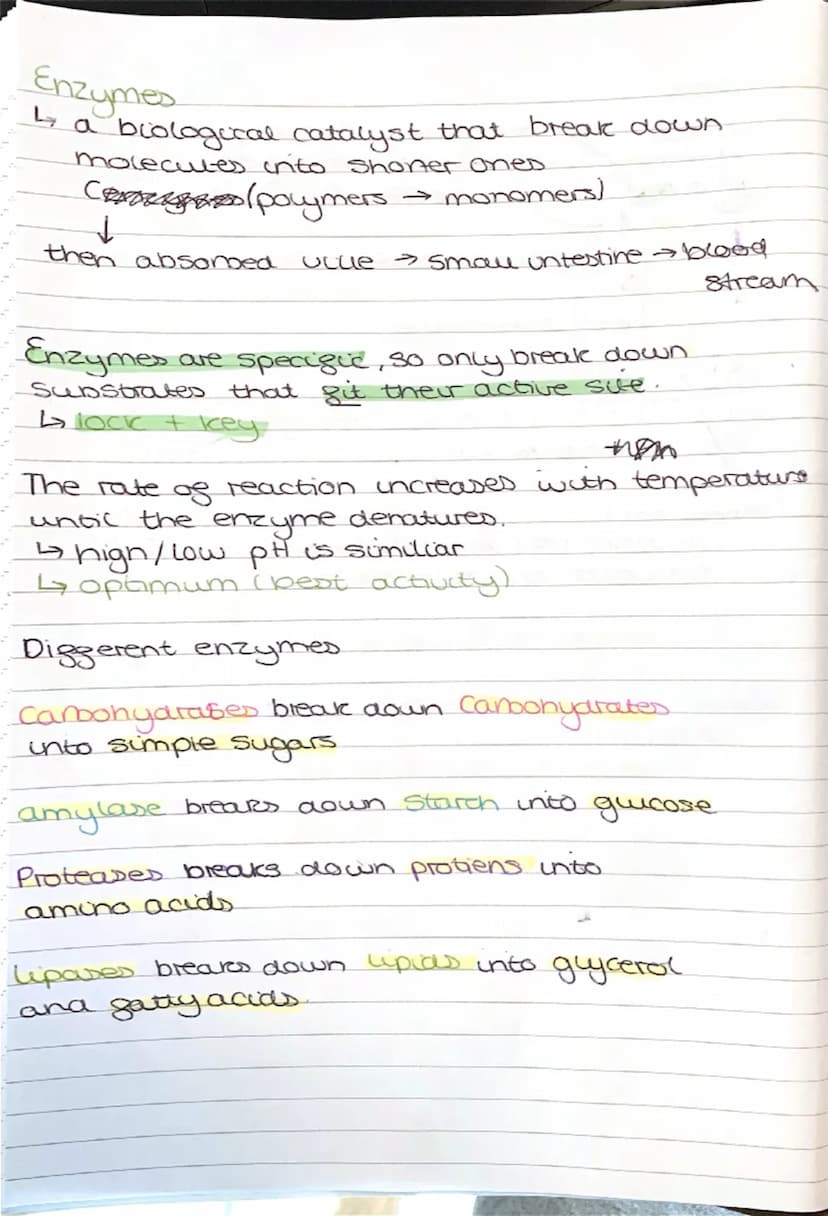 Enzymes
↳ a biological catalyst that break down
molecules into shorter ones
(polymers → monomers)
↓
then absorbed villie → small intestine → blood
stream
Enzymes are specific, so only break down
substrates that fit their active site.
↳ lock + key
The rate of reaction increases with temperature
until the enzyme denatures.
↳ high/low pH is similiar
↳ optimum (best activity)
Different enzymes
Carbohydrases break down Carbohydrates
into simple sugars
amylase breaks down starch into glucose
Proteases breaks down protiens into
amino acids
lipases breaks down lipids into glycerol
and fatty acids